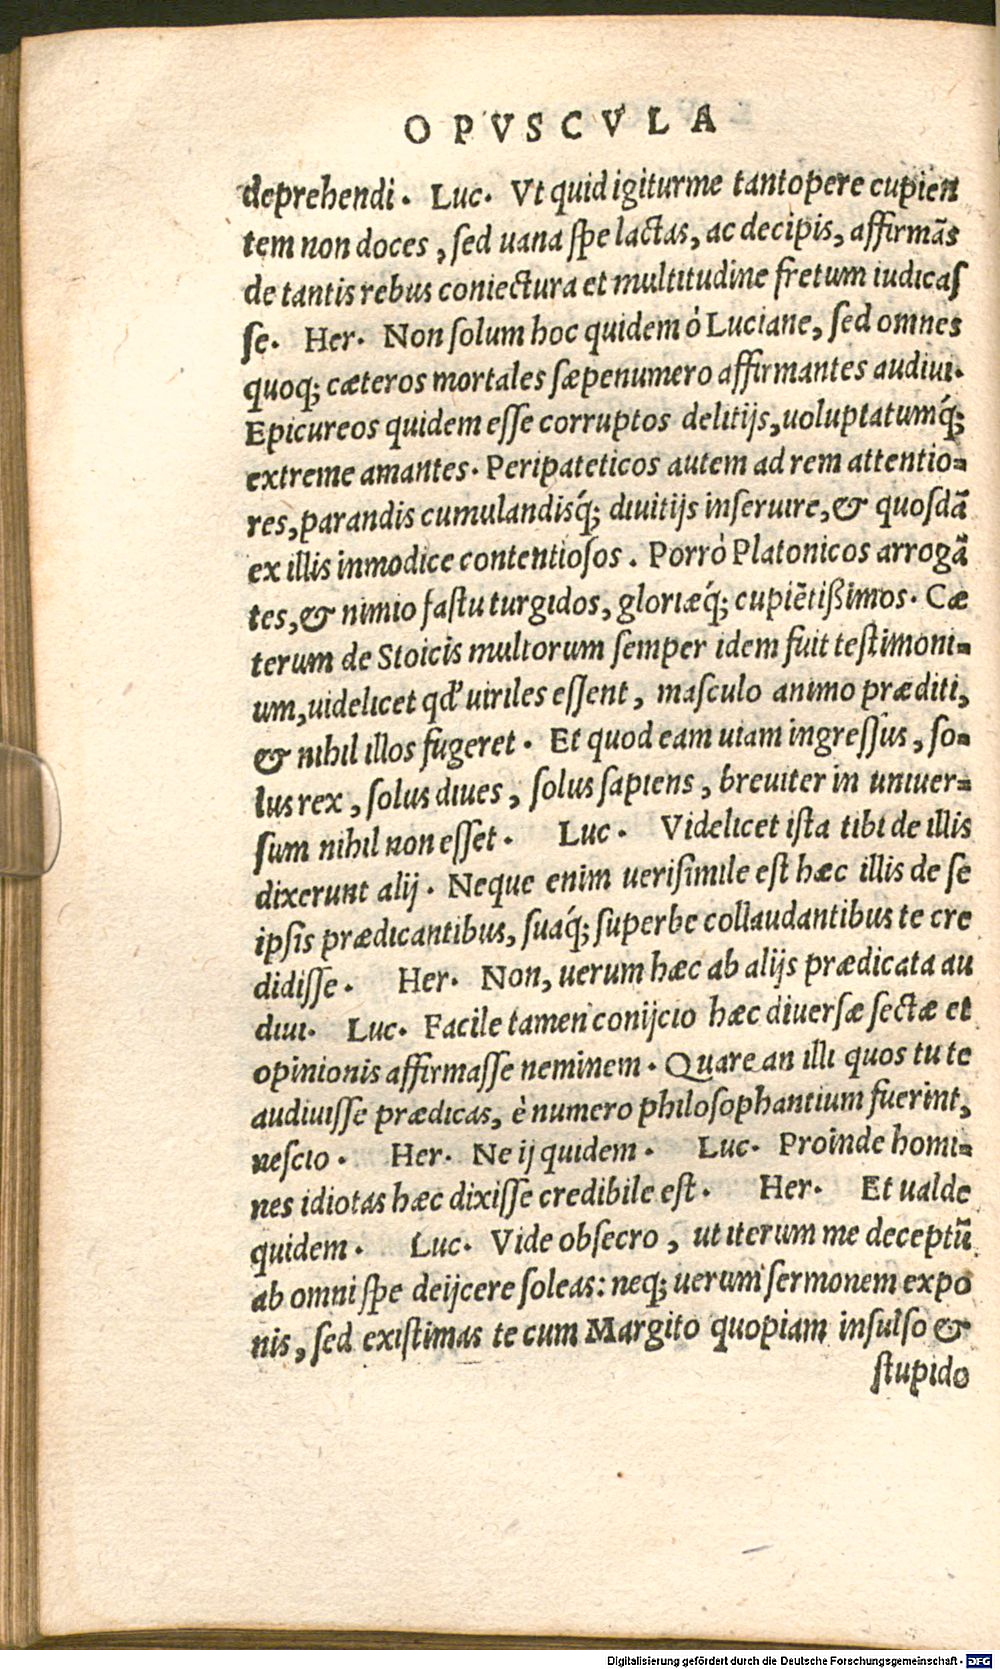 OPVSCVLA
deprehendi. Luc. Vt quid igitur me tantopere cupien
tem non doces, sed uana spe lactas, ac decipis, affirmãs
de tantis rebus coniectura et multitudine fretum iudicas
se. Her. Non solum hoc quidem ò Luciane, sed omnes
quoq; cæteros mortales sæpenumero affirmantes audiui.
Epicureos quidem esse corruptos delitijs, uoluptatumq́;
extreme amantes. Peripateticos autem ad rem attentio-
res, parandis cumulandisq́; diuitijs inseruire, & quosdã
ex illis inmodice contentiosos. Porrò Platonicos arrogã
tes, & nimio fastu turgidos, gloriæq́; cupiẽtißimos. Cæ
terum de Stoicis multorum semper idem fuit testimoni-
um, uidelicet qđ uiriles essent, masculo animo præditi,
& nihil illos fugeret. Et quod eam uiam ingressus, so-
lus rex, solus diues, solus sapiens, breuiter in uniuer-
sum nihil non esset. Luc. Videlicet ista tibi de illis
dixerunt alij. Neque enim uerisimile est hæc illis de se
ipsis prædicantibus, suaq́; superbe collaudantibus te cre
didisse. Her. Non, uerum hæc ab alijs prædicata au
diui. Luc. Facile tamen conijcio hæc diuersæ sectæ et
opinionis affirmasse neminem. Quare an illi quos tu te
audiuisse prædicas, è numero philosophantium fuerint,
nescio. Her. Ne ij quidem. Luc. Proinde homi-
nes idiotas hæc dixisse credibile est. Her. Et ualde
quidem. Luc. Vide obsecro, ut iterum me deceptũ
ab omni spe deijcere soleas: neq; uerum sermonem expo
nis, sed existimas te cum Margito quopiam insulso &
stupido
Digitalisierung gefördert durch die Deutsche Forschungsgemeinschaft - DFG